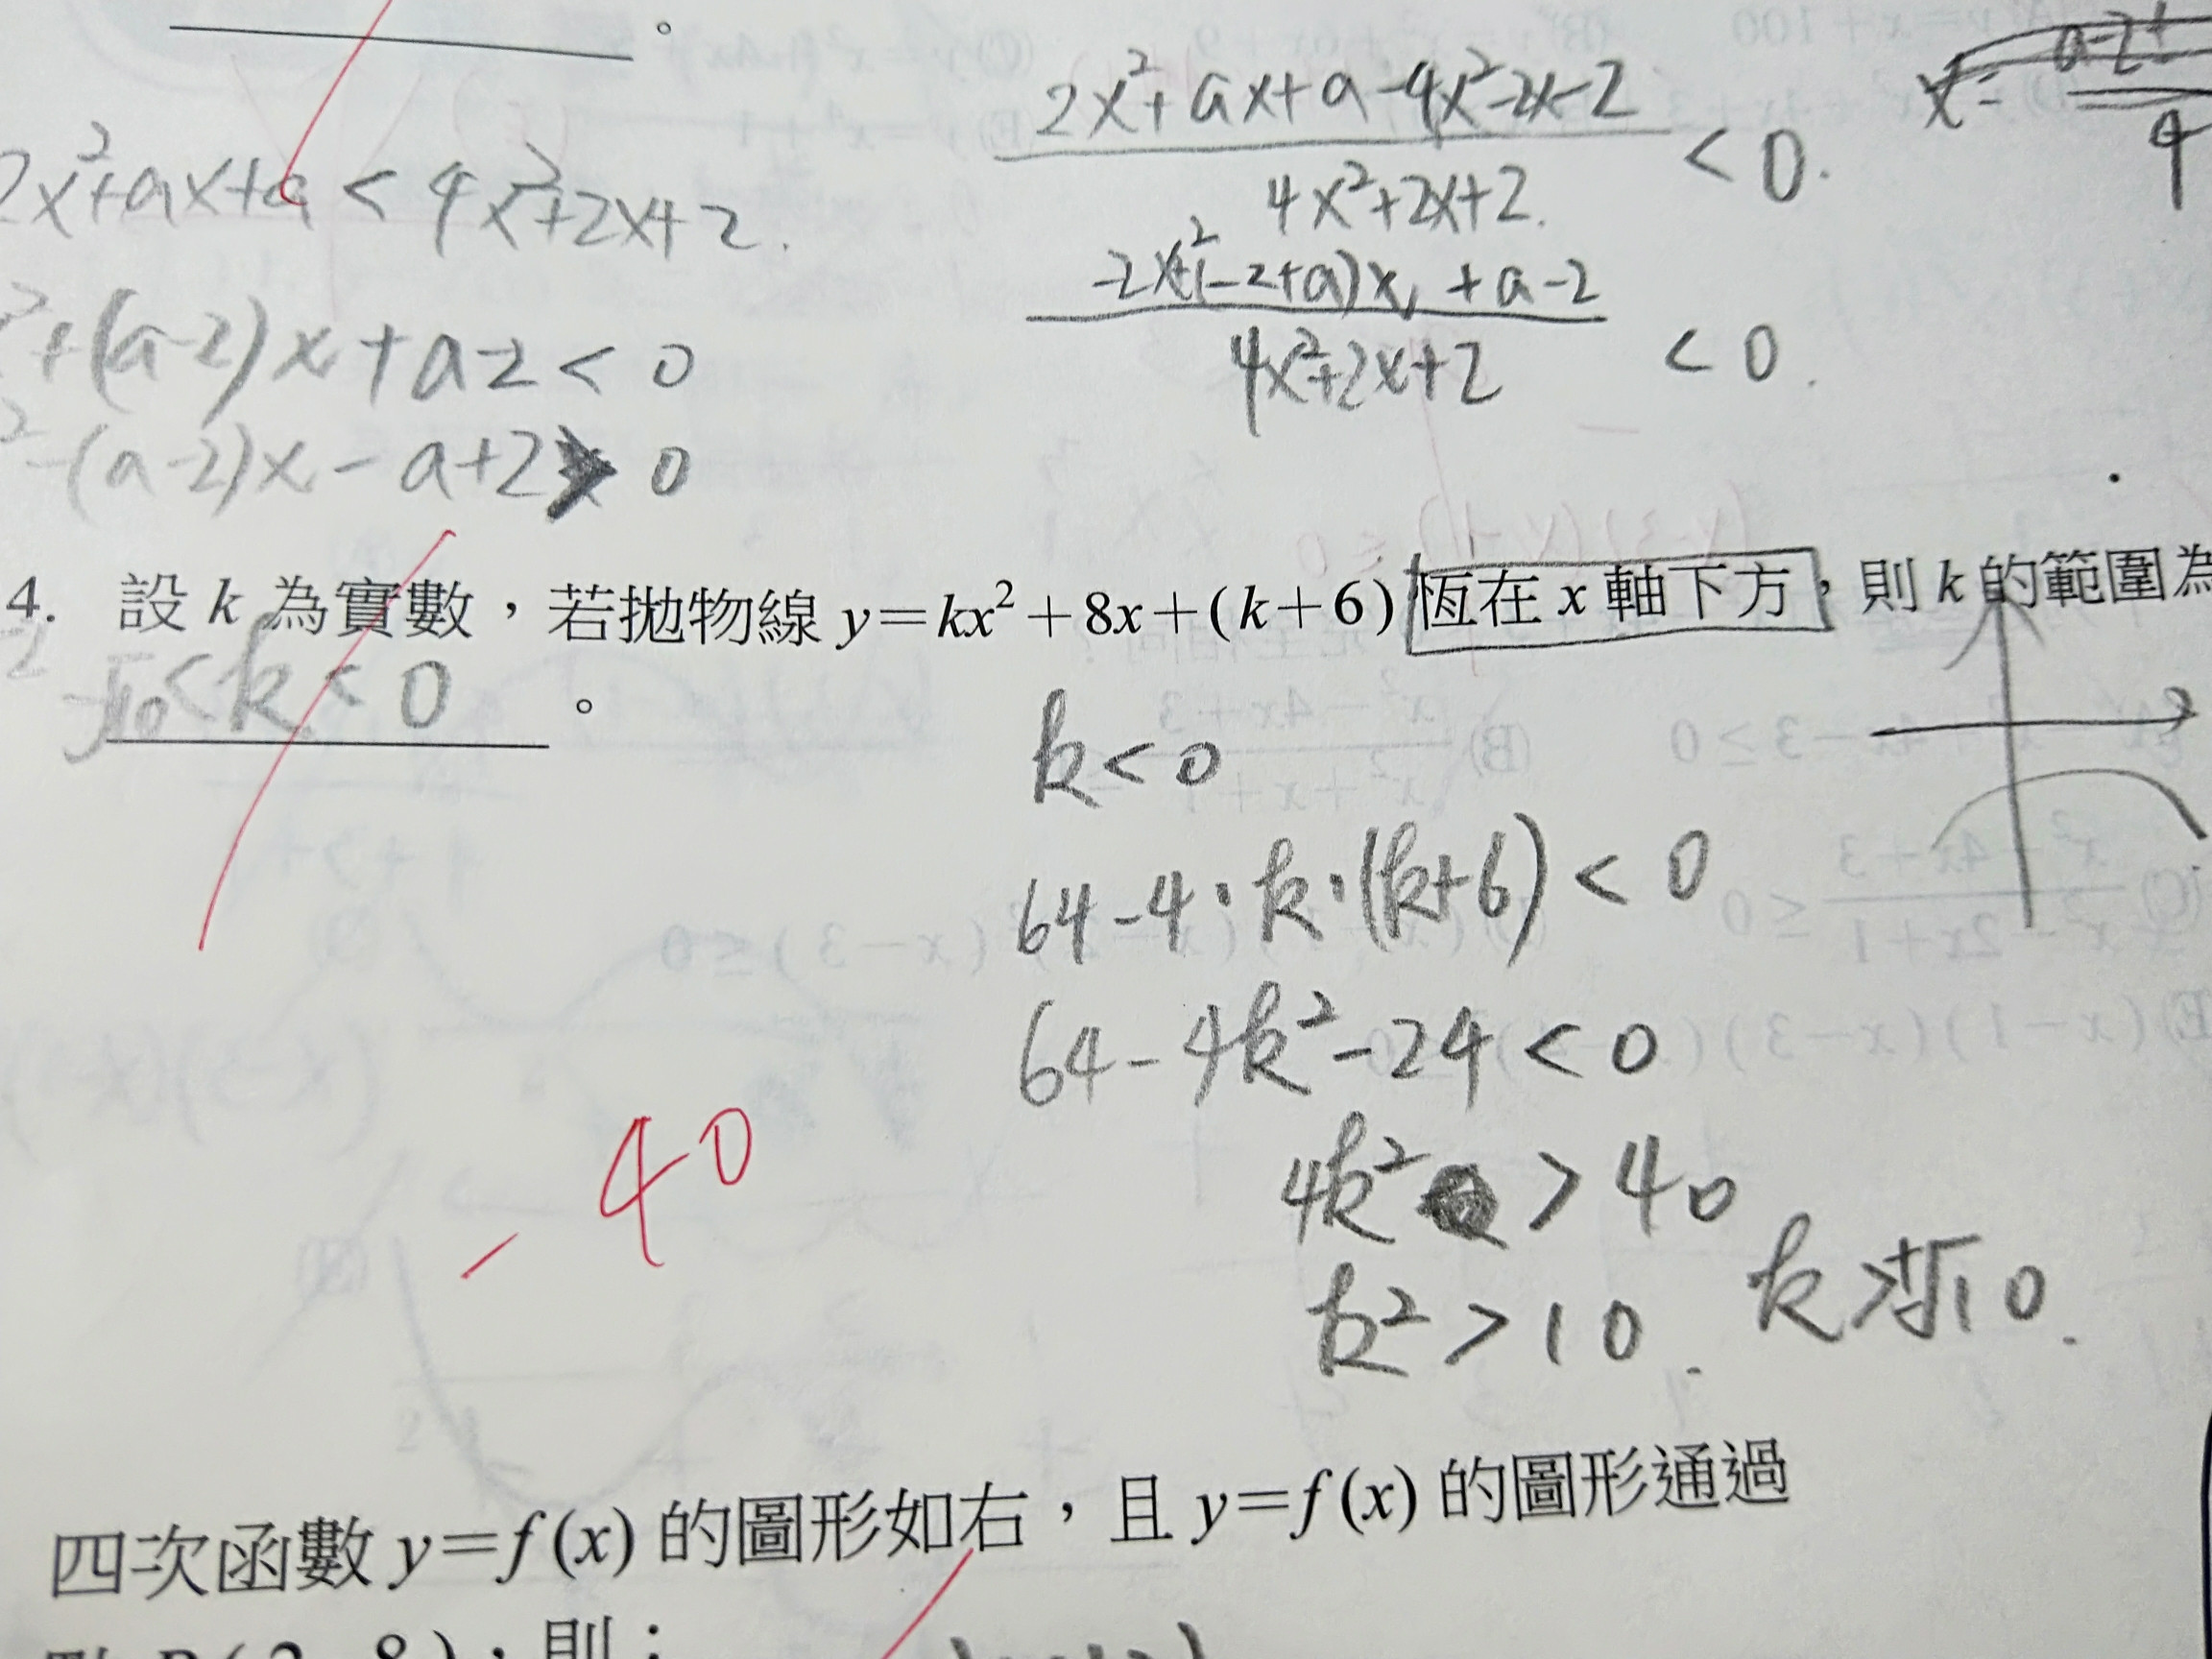 。
2x²+ax+a-4x²-2x-2
4x²+2x+2.
< 0.
x=
4
2x²+ax+a < 4x²+2x+2.
-2x²+(-2+a)x + a-2
4x²+2x+2
< 0.
²+(a-2)x+a-2 < 0
²-(a-2)x-a+2 > 0
4. 設 k 為實數，若拋物線 y=kx²+8x+(k+6) 恆在 x 軸下方，則 k 的範圍為
-√10 < k < 0 。
k < 0
64-4·k·(k+6) < 0
64-4k²-24 < 0
4k² > 40
k² > 10. k > ±√10.
-40
四次函數 y=f(x) 的圖形如右，且 y=f(x) 的圖形通過